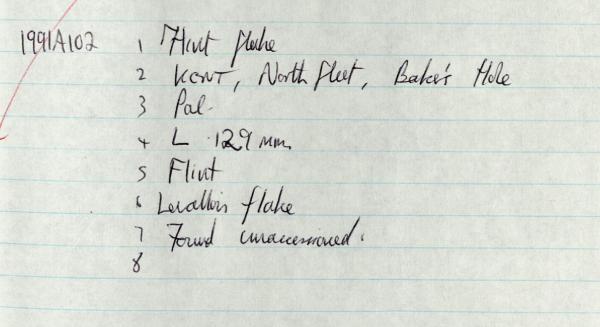 1991A102 1 Flint flake
2 KENT, Northfleet, Baker's Hole
3 Pal.
4 L 129 mm
5 Flint
6 Levallois flake
7 Found unaccessioned.
8